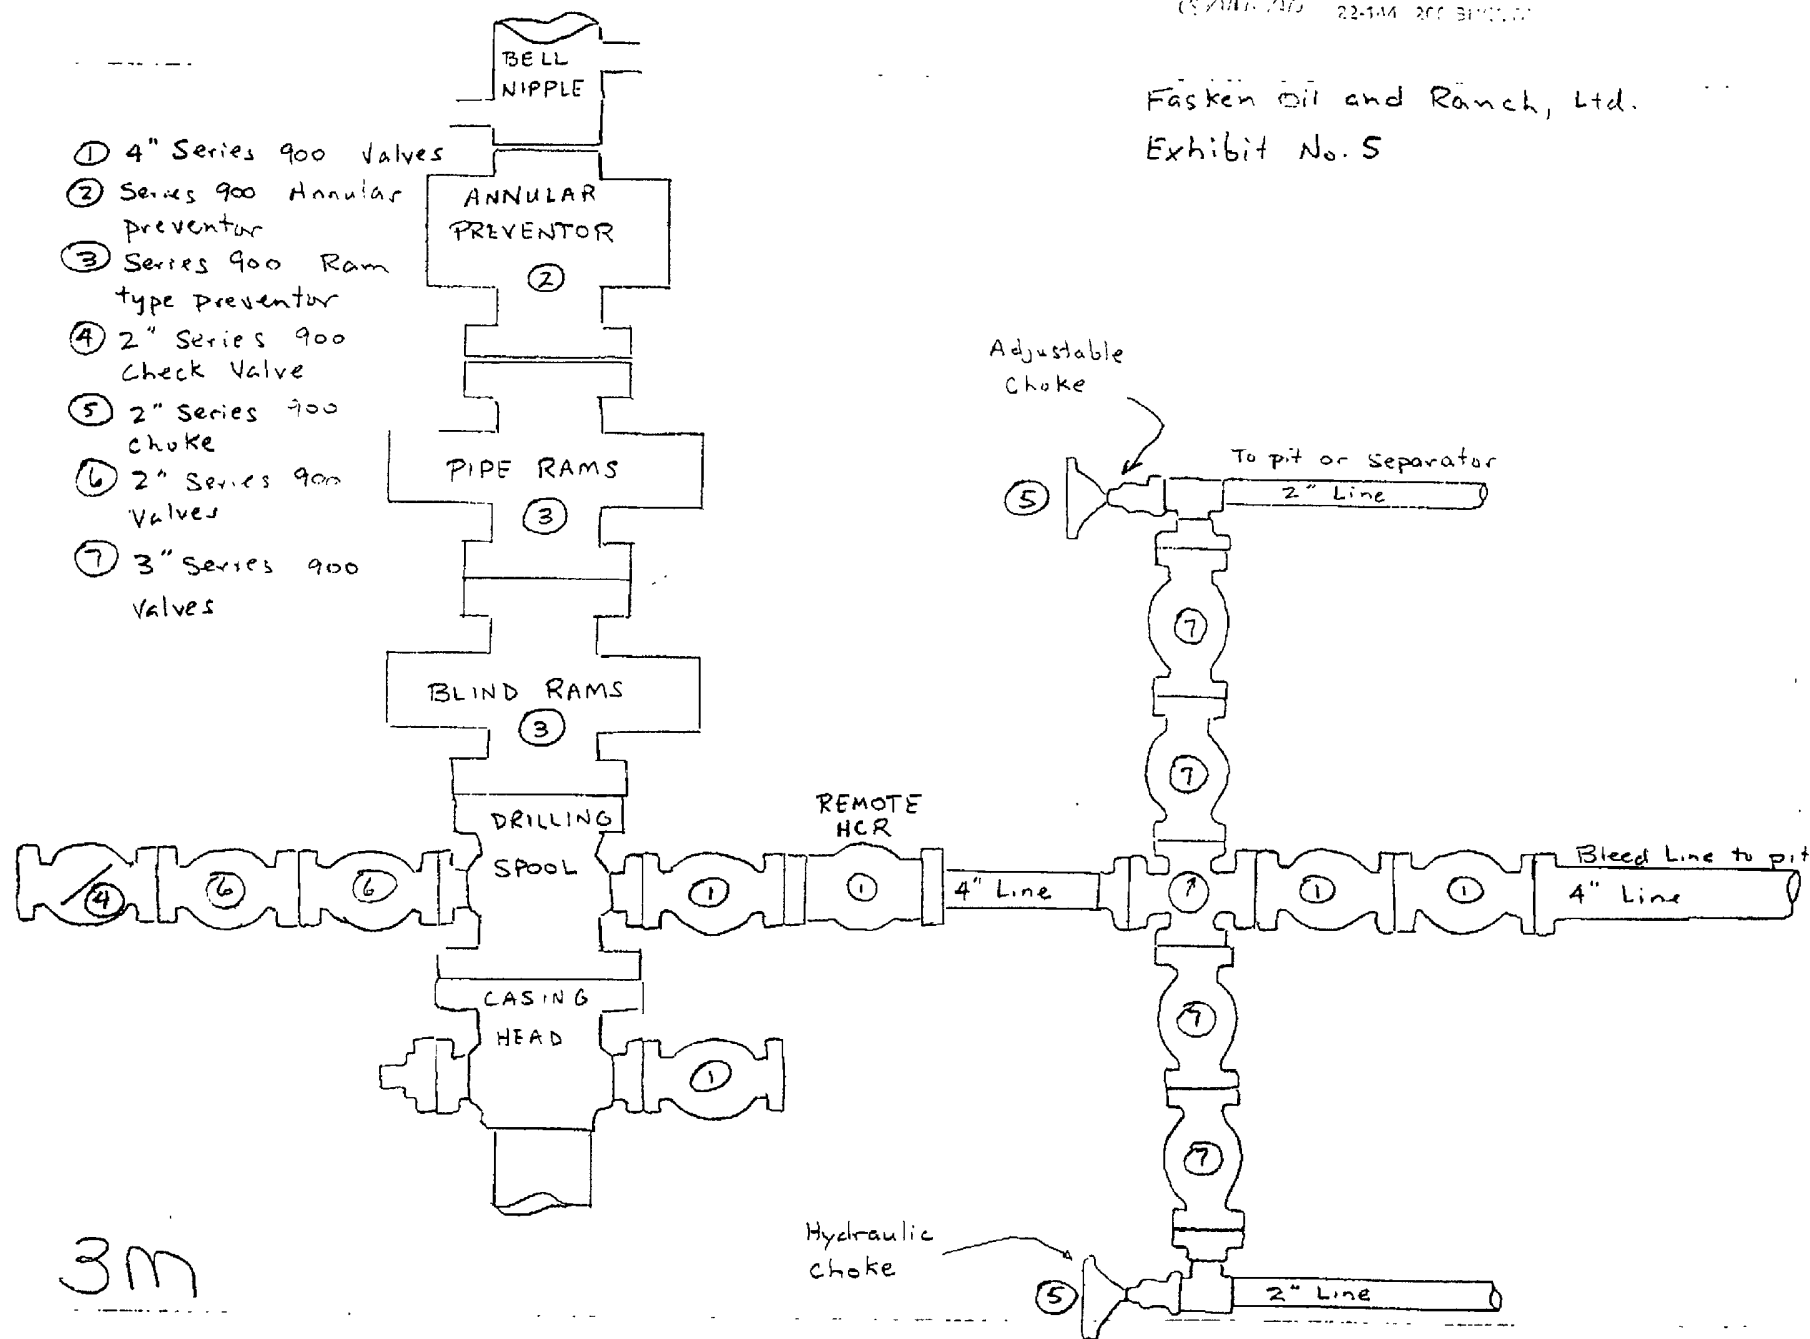 Fasken Oil and Ranch, Ltd.
Exhibit No. 5
① 4" Series 900 Valves
② Series 900 Annular
preventor
③ Series 900 Ram
type preventor
④ 2" Series 900
Check Valve
⑤ 2" Series 900
Choke
⑥ 2" Series 900
Valves
⑦ 3" Series 900
Valves
BELL
NIPPLE
ANNULAR
PREVENTOR
②
PIPE RAMS
③
BLIND RAMS
③
DRILLING
SPOOL
④ ⑥ ⑥
REMOTE
HCR
① ①
4" Line
① ①
Bleed Line to pit
4" Line
CASING
HEAD
①
Adjustable
Choke
⑤
To pit or separator
2" Line
⑦
⑦
⑦
⑦
Hydraulic
Choke
⑤
2" Line
3M